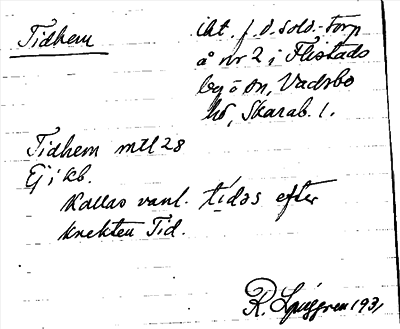 Tidhem
lht. f. d. sold.-torp
å nr 2 i Flistads
by ö on, Vadsbo
hd, Skarab. l.
Tidhem mtl 28
Ej i kb.
Kallas vanl. tídas efter
knekten Tid.
R. Ljunggren 1931